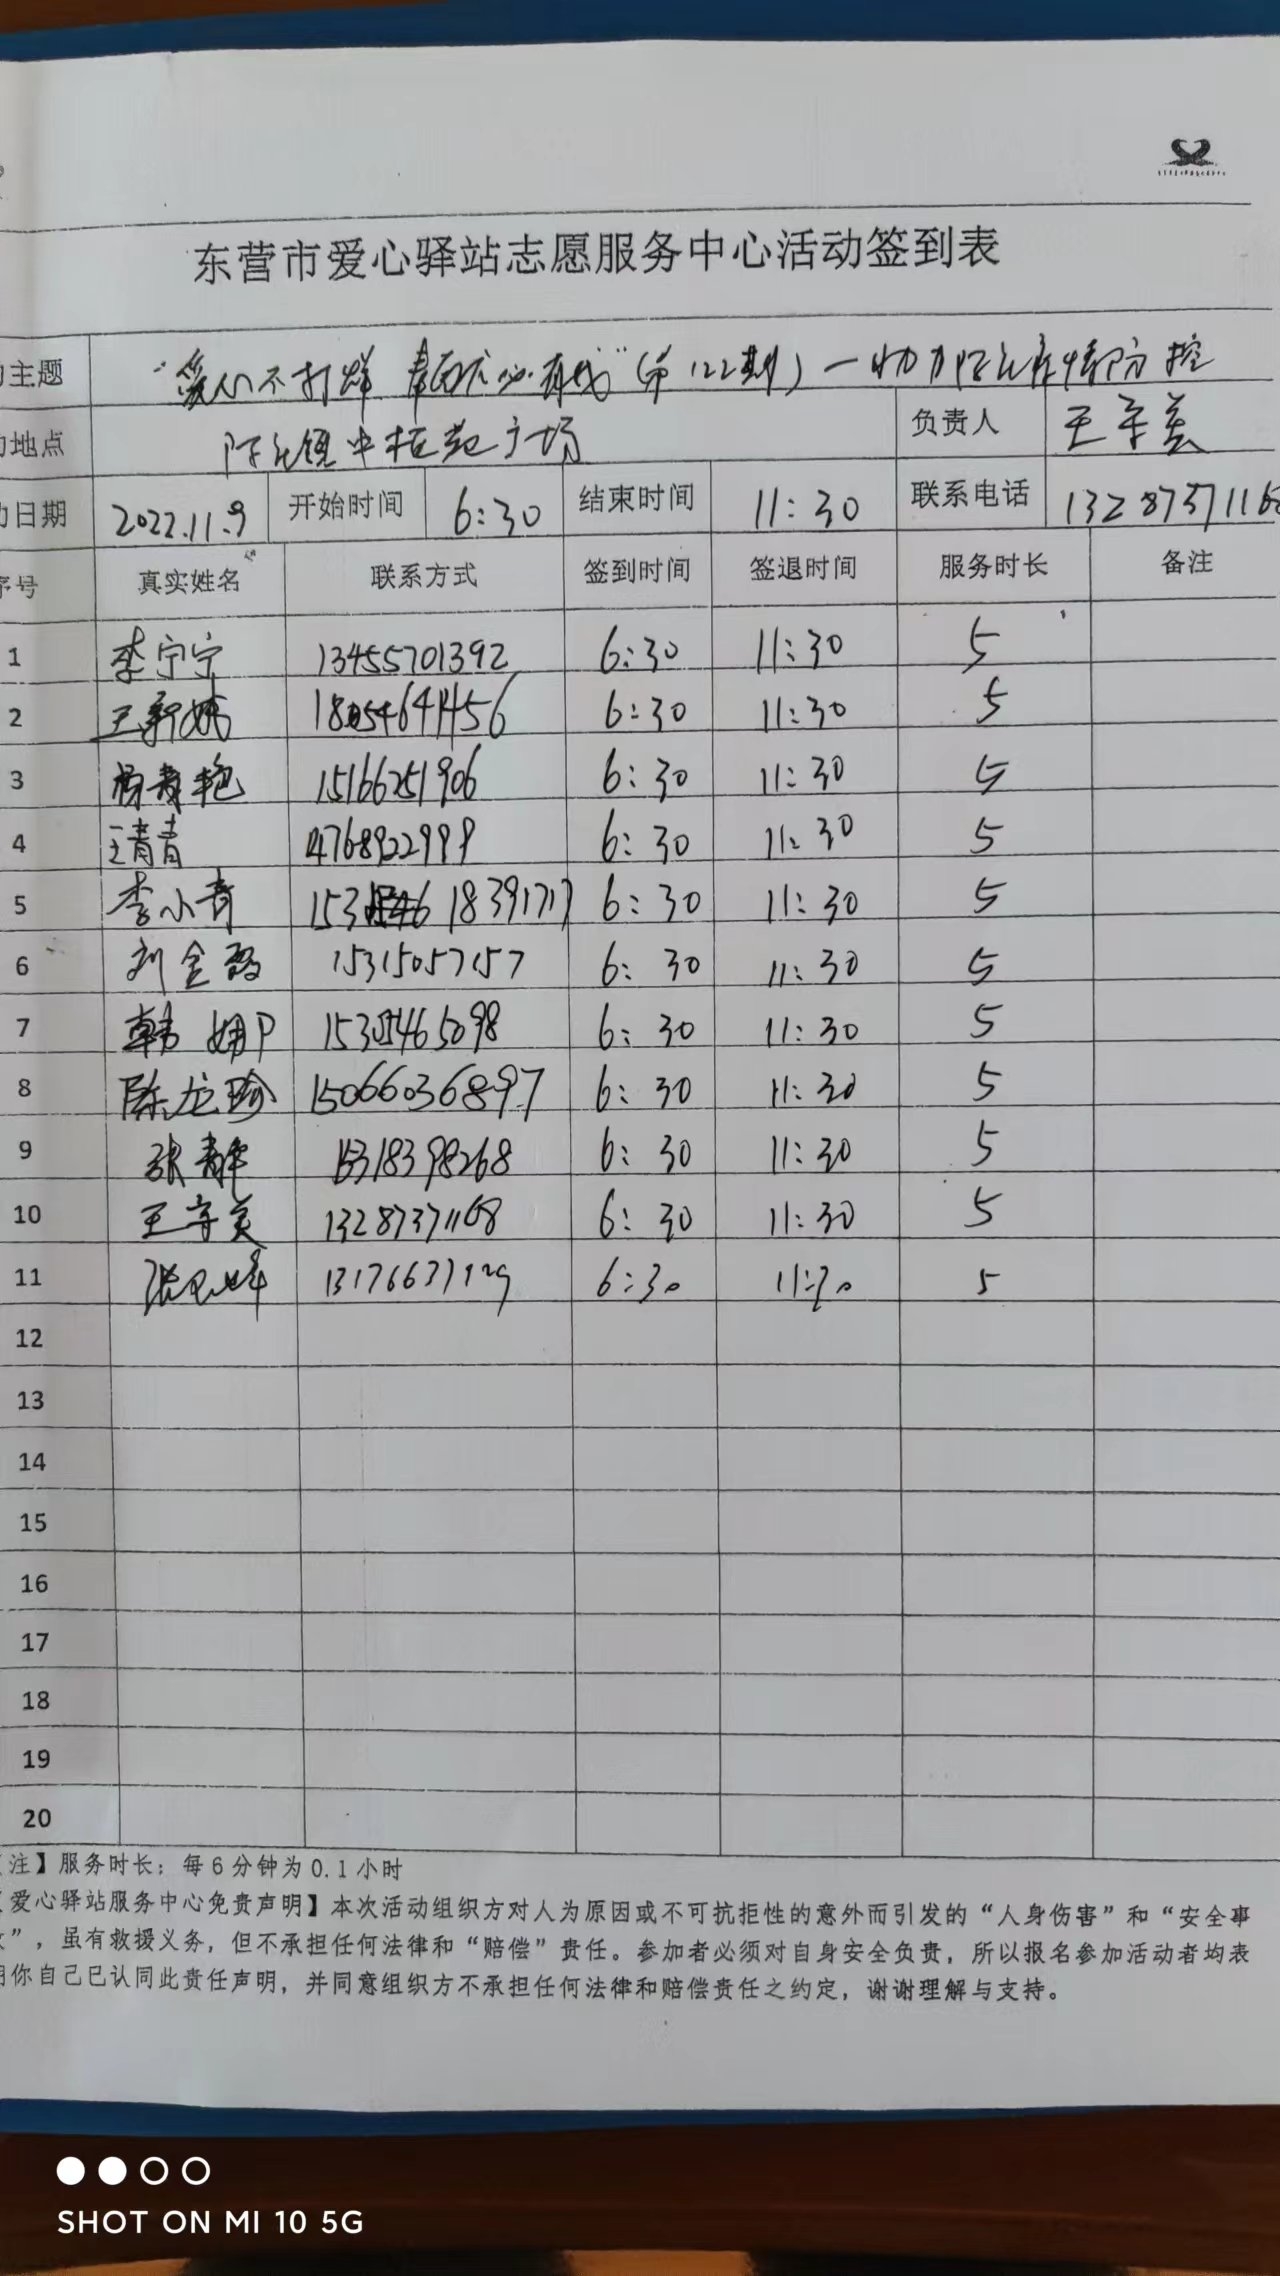 东营市爱心驿站志愿服务中心活动签到表
主题 "爱心不打烊 有我"(第122期)—助力疫情防控
地点 镇中 广场 负责人 王守美
日期 2022.11.9 开始时间 6:30 结束时间 11:30 联系电话 132873711
序号 真实姓名 联系方式 签到时间 签退时间 服务时长 备注
1 李宁宁 13455701392 6:30 11:30 5
2 王新娥 18054641456 6:30 11:30 5
3 杨青艳 15166251906 6:30 11:30 5
4 王青青 6:30 11:30 5
5 李小青 153 18391717 6:30 11:30 5
6 刘金 15315057157 6:30 11:30 5
7 韩 6:30 11:30 5
8 陈龙珍 15066036897 6:30 11:30 5
9 张静 15318398268 6:30 11:30 5
10 王守美 13287371168 6:30 11:30 5
11 张 6:30 11:30 5
12
13
14
15
16
17
18
19
20
注】服务时长：每6分钟为0.1小时
爱心驿站服务中心免责声明】本次活动组织方对人为原因或不可抗拒性的意外而引发的“人身伤害”和“安全事
”，虽有救援义务，但不承担任何法律和“赔偿”责任。参加者必须对自身安全负责，所以报名参加活动者均表
你自己已认同此责任声明，并同意组织方不承担任何法律和赔偿责任之约定，谢谢理解与支持。
SHOT ON MI 10 5G